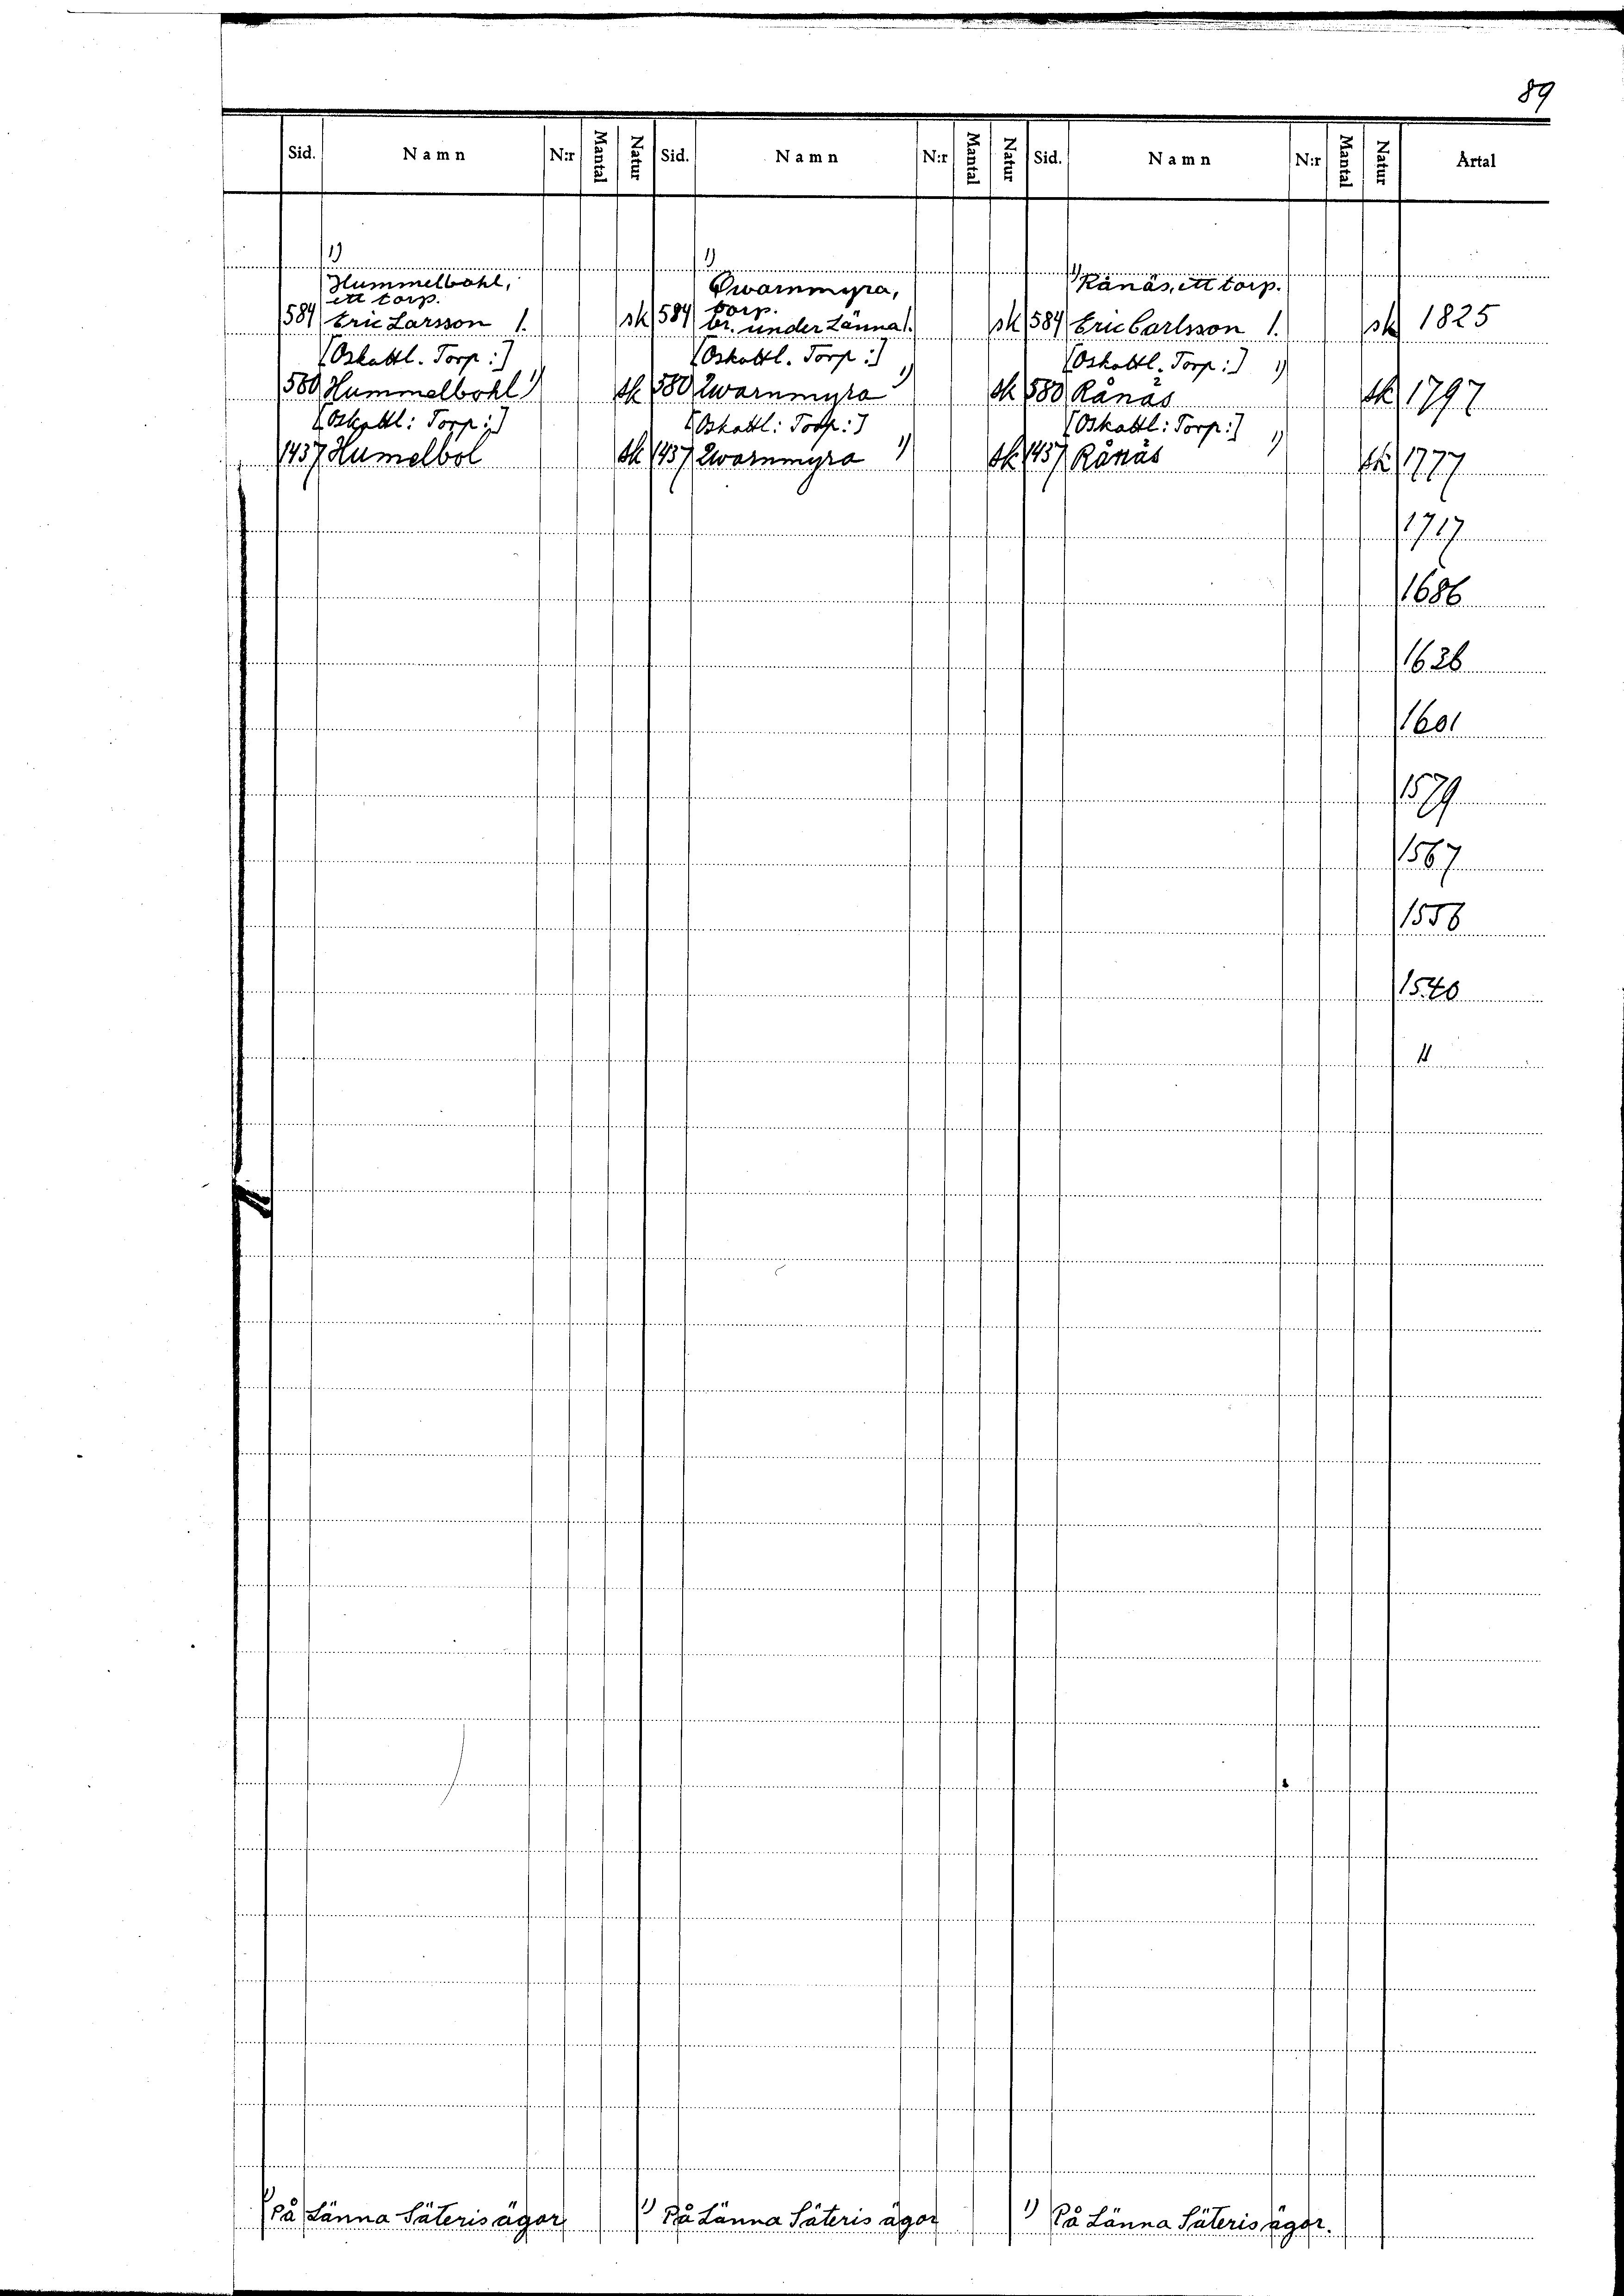 89
Sid. Namn N:r Mantal Natur Sid. Namn N:r Mantal Natur Sid. Namn N:r Mantal Natur Årtal
1) 1)
Hummelbohl, Qwarnmyra, 1) Rånäs, ett torp.
ett torp. torp.
584 Eric Larsson 1. sk 584 br. under Länna 1. sk 584 Eric Carlsson 1. sk 1825
[Oskattl. Torp:] [Oskattl. Torp:] [Oskattl. Torp:]
580 Hummelbohl 1) sk 580 Qwarnmyra 1) sk 580 Rånäs 1) sk 1797
[Oskattl: Torp:] [Oskattl: Torp:] [Oskattl: Torp:]
1437 Humelbol sk 1437 Qwarnmyra 1) sk 1437 Rånäs 1) sk 1777
1717
1686
1636
1601
1579
1567
1556
1540
"
1) På Länna Säteris ägor 1) På Länna Säteris ägor 1) På Länna Säteris ägor.